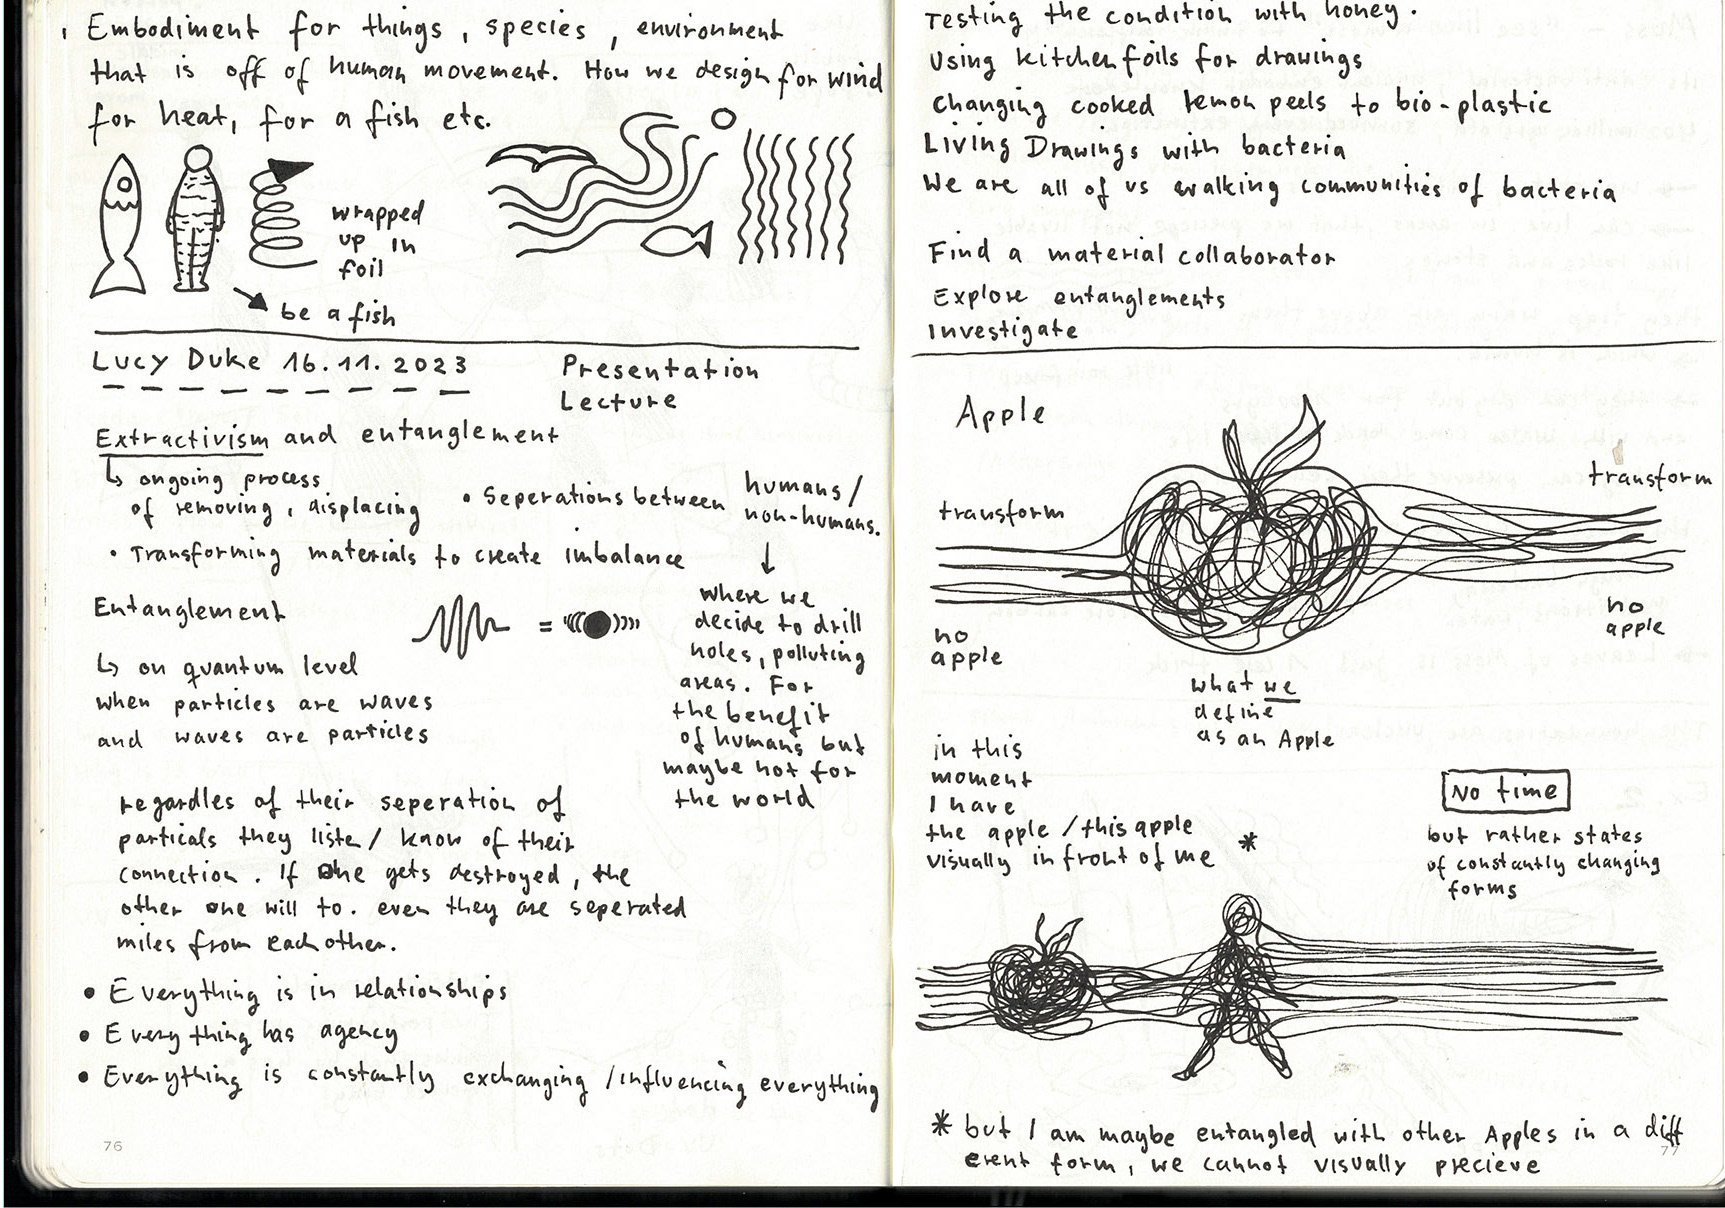 Embodiment for things, species, environment
that is off of human movement. How we design for wind
for heat, for a fish etc.
wrapped
up in
foil
be a fish
Lucy Duke 16.11.2023
Presentation
Lecture
Extractivism and entanglement
ongoing process
of removing, displacing
• Seperations between humans/
non-humans.
• Transforming materials to create imbalance
where we
decide to drill
holes, polluting
areas. For
the benefit
of humans but
maybe not for
the world
Entanglement
=
on quantum level
when particles are waves
and waves are particles
regardles of their seperation of
particals they liste/ know of their
connection. If one gets destroyed, the
other one will to. even they are seperated
miles from each other.
• Everything is in relationships
• Everything has agency
• Everything is constantly exchanging /influencing everything
76
Testing the condition with honey.
Using kitchen foils for drawings
changing cooked lemon peels to bio-plastic
Living Drawings with bacteria
We are all of us walking communities of bacteria
Find a material collaborator
Explore entanglements
Investigate
Apple
transform
transform
no
apple
no
apple
what we
define
as an Apple
in this
moment
I have
the apple / this apple
visually in front of me *
No time
but rather states
of constantly changing
forms
* but I am maybe entangled with other Apples in a diff
erent form, we cannot visually precieve
77